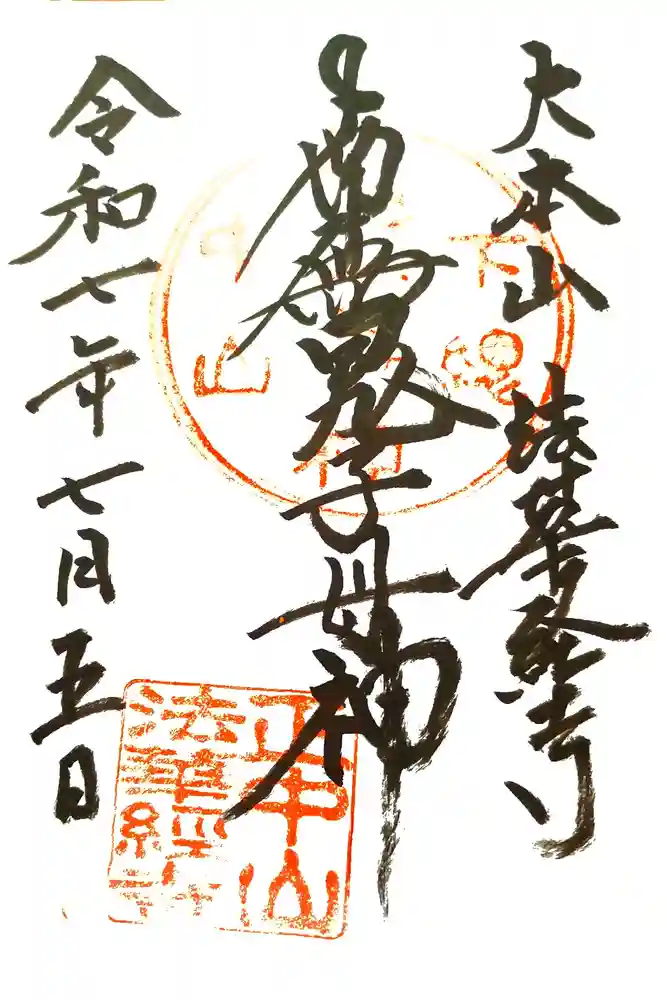 大本山 法華経寺
南無鬼子母神
令和七年七月五日
正中山
法華經寺